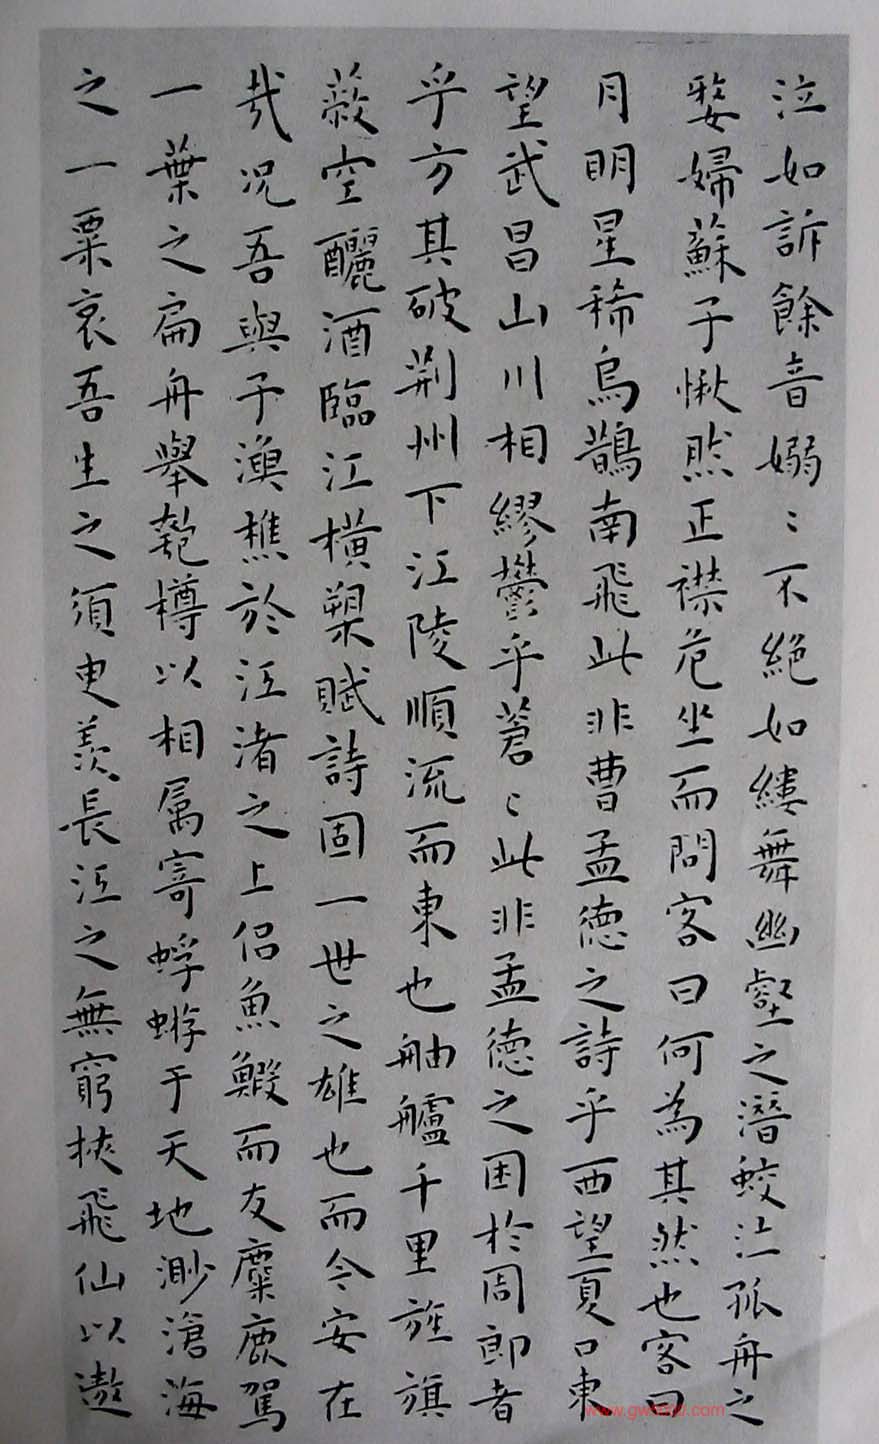 泣如訴餘音嫋〻不絕如縷舞幽壑之潛蛟泣孤舟之
嫠婦蘇子愀然正襟危坐而問客曰何為其然也客曰
月明星稀烏鵲南飛此非曹孟德之詩乎西望夏口東
望武昌山川相繆鬱乎蒼〻此非孟德之困於周郎者
乎方其破荊州下江陵順流而東也舳艫千里旌旗
蔽空釃酒臨江橫槊賦詩固一世之雄也而今安在
哉况吾與子漁樵於江渚之上侶魚鰕而友麋鹿駕
一葉之扁舟舉匏樽以相属寄蜉蝣于天地渺滄海
之一粟哀吾生之須臾羨長江之無窮挾飛仙以遨